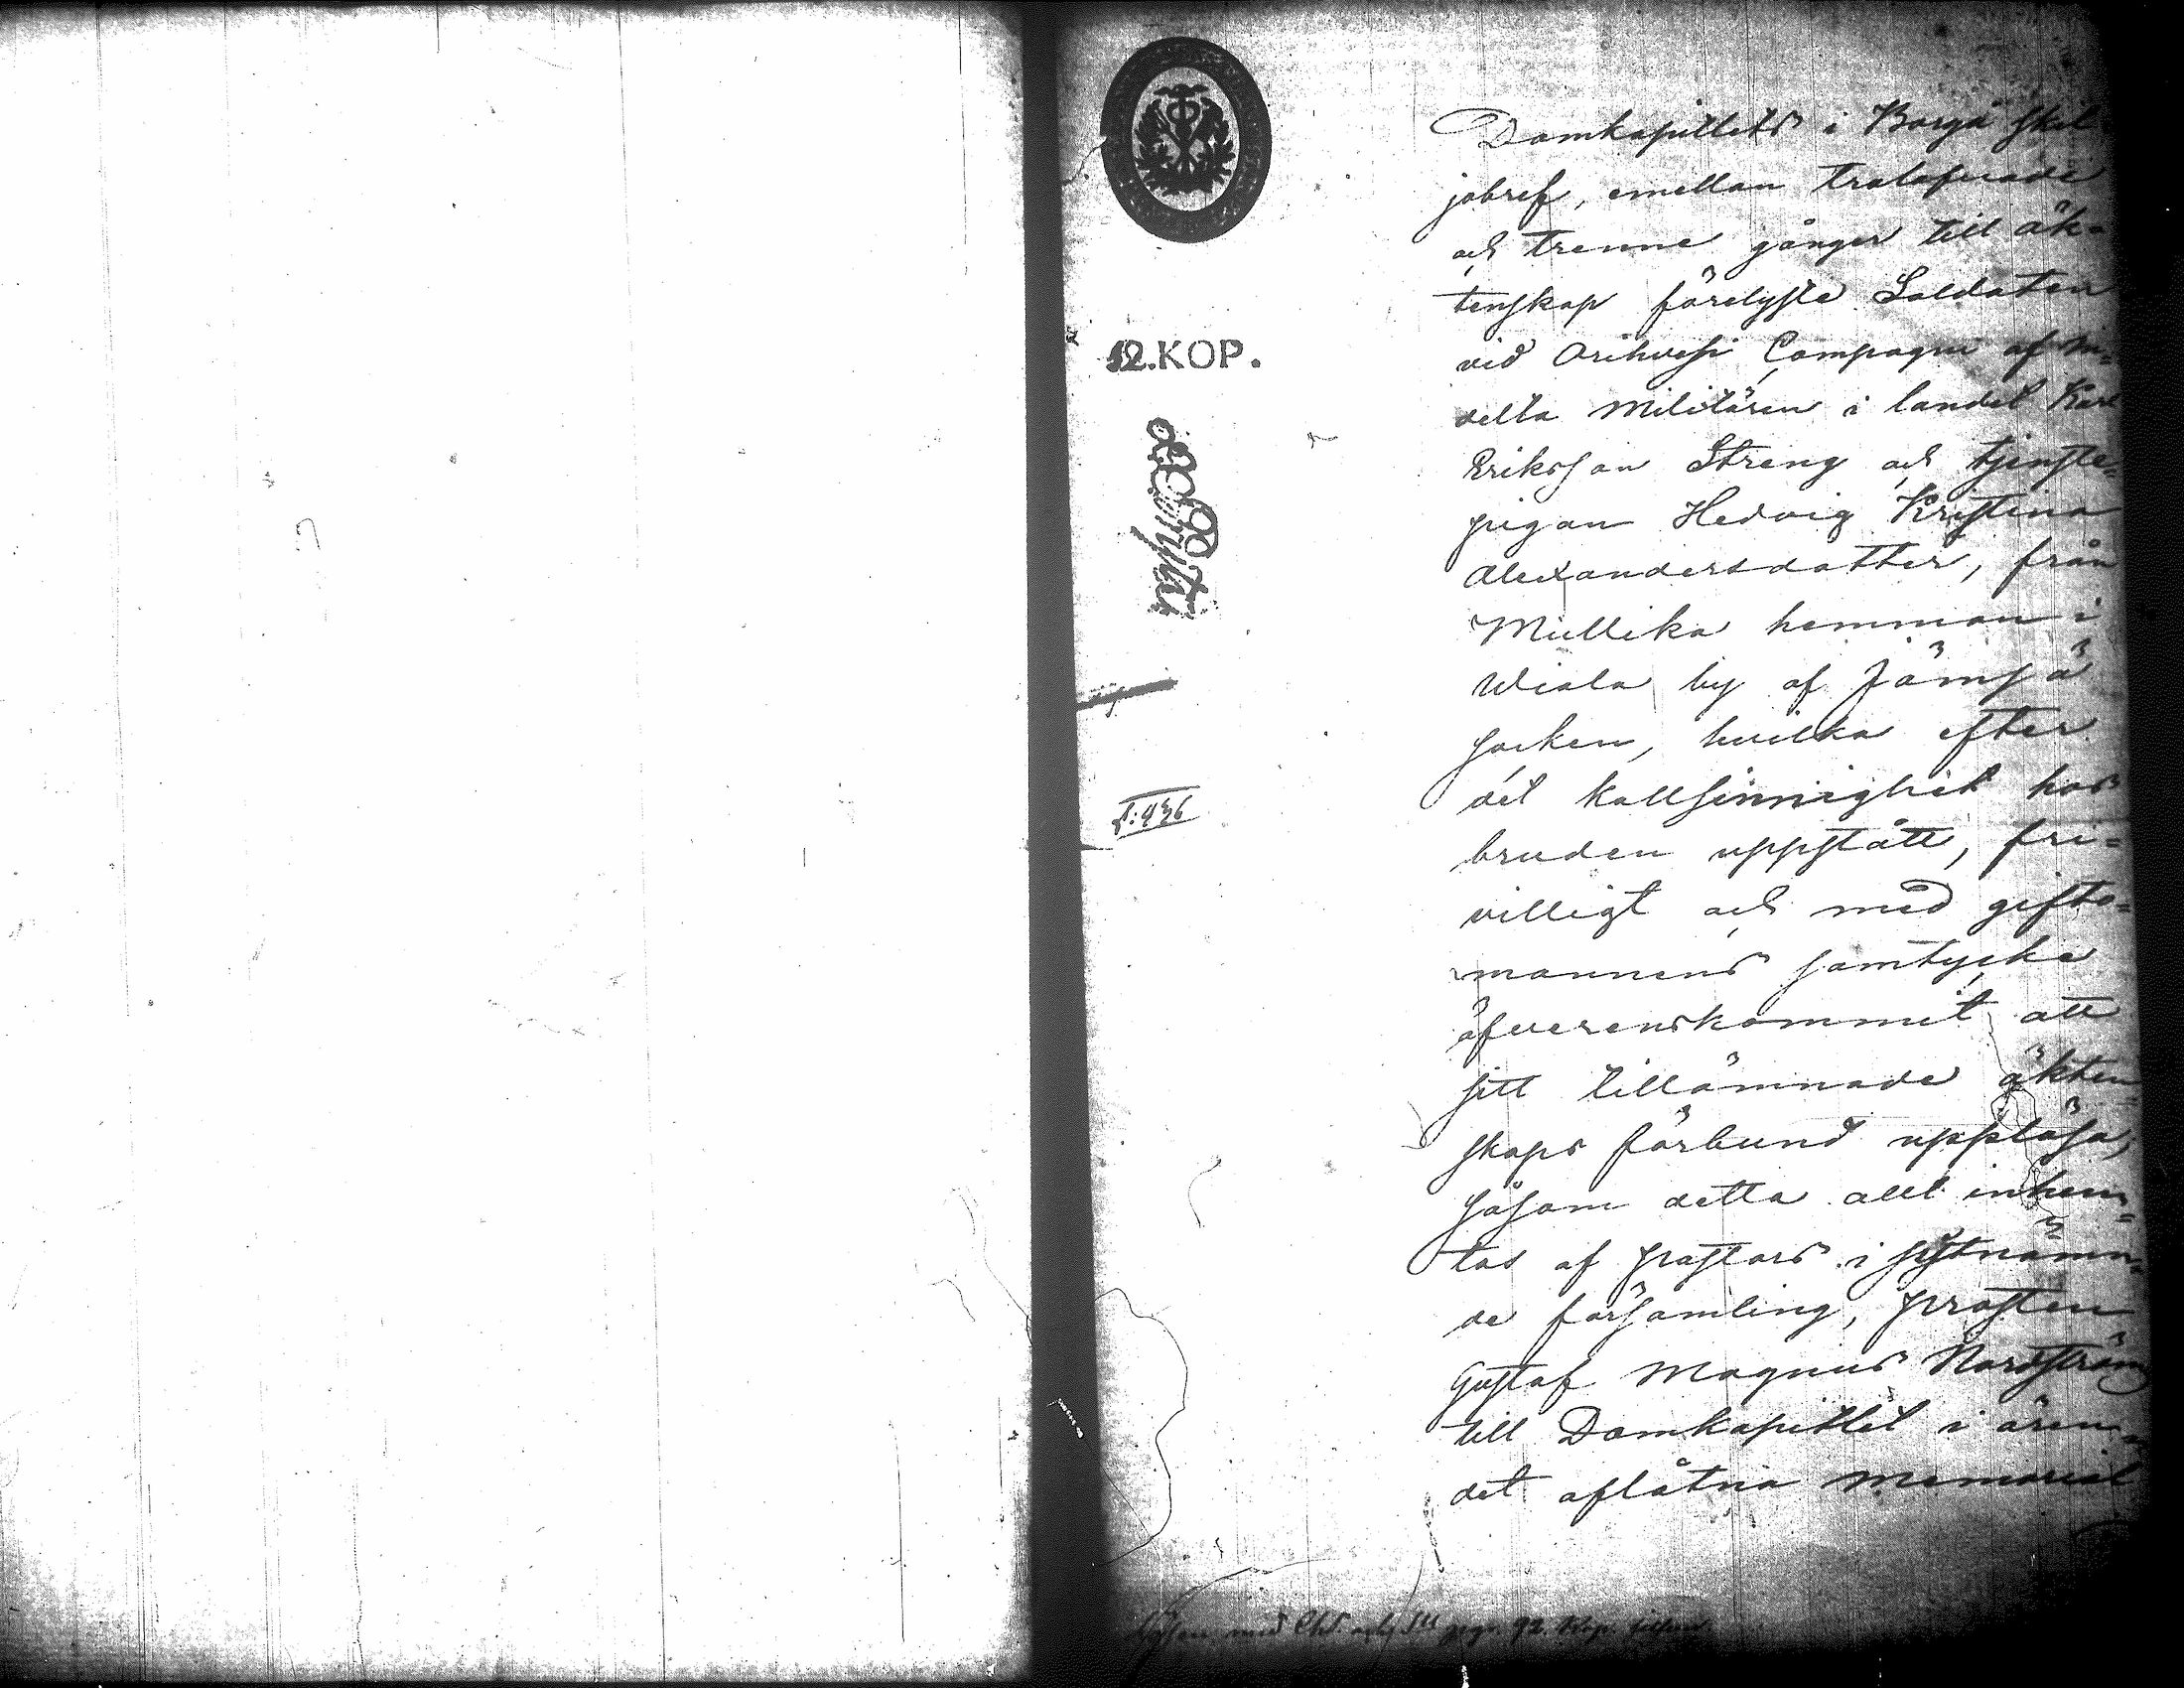 12.KOP.
f: 436
Domkapitlets i Borgå skil
jobref, emellan trolofvade
och trenne gånger till äk-
tenskap förelyste Soldaten
vid Orihvesi Compagni af in-
delta Militären i landet Karl
Eriksson Streng och tjenste-
pigan Hedvig Kristina
Alexandersdotter, från
Mullika hemman i
Wiala by af Jämsä
socken, hvilka efter
det kallsinnighet hos
bruden uppstått, fri-
villigt och med gifto-
mannens samtycke
öfverenskommit att
sitt tillämnade äkten-
skaps förbund upplösa;
såsom detta allt inhem-
tas af pastors i sistnämn-
de församling, prosten
Gustaf Magnus Nordström
till Domkapitlet i ären-
det aflåtna memorial